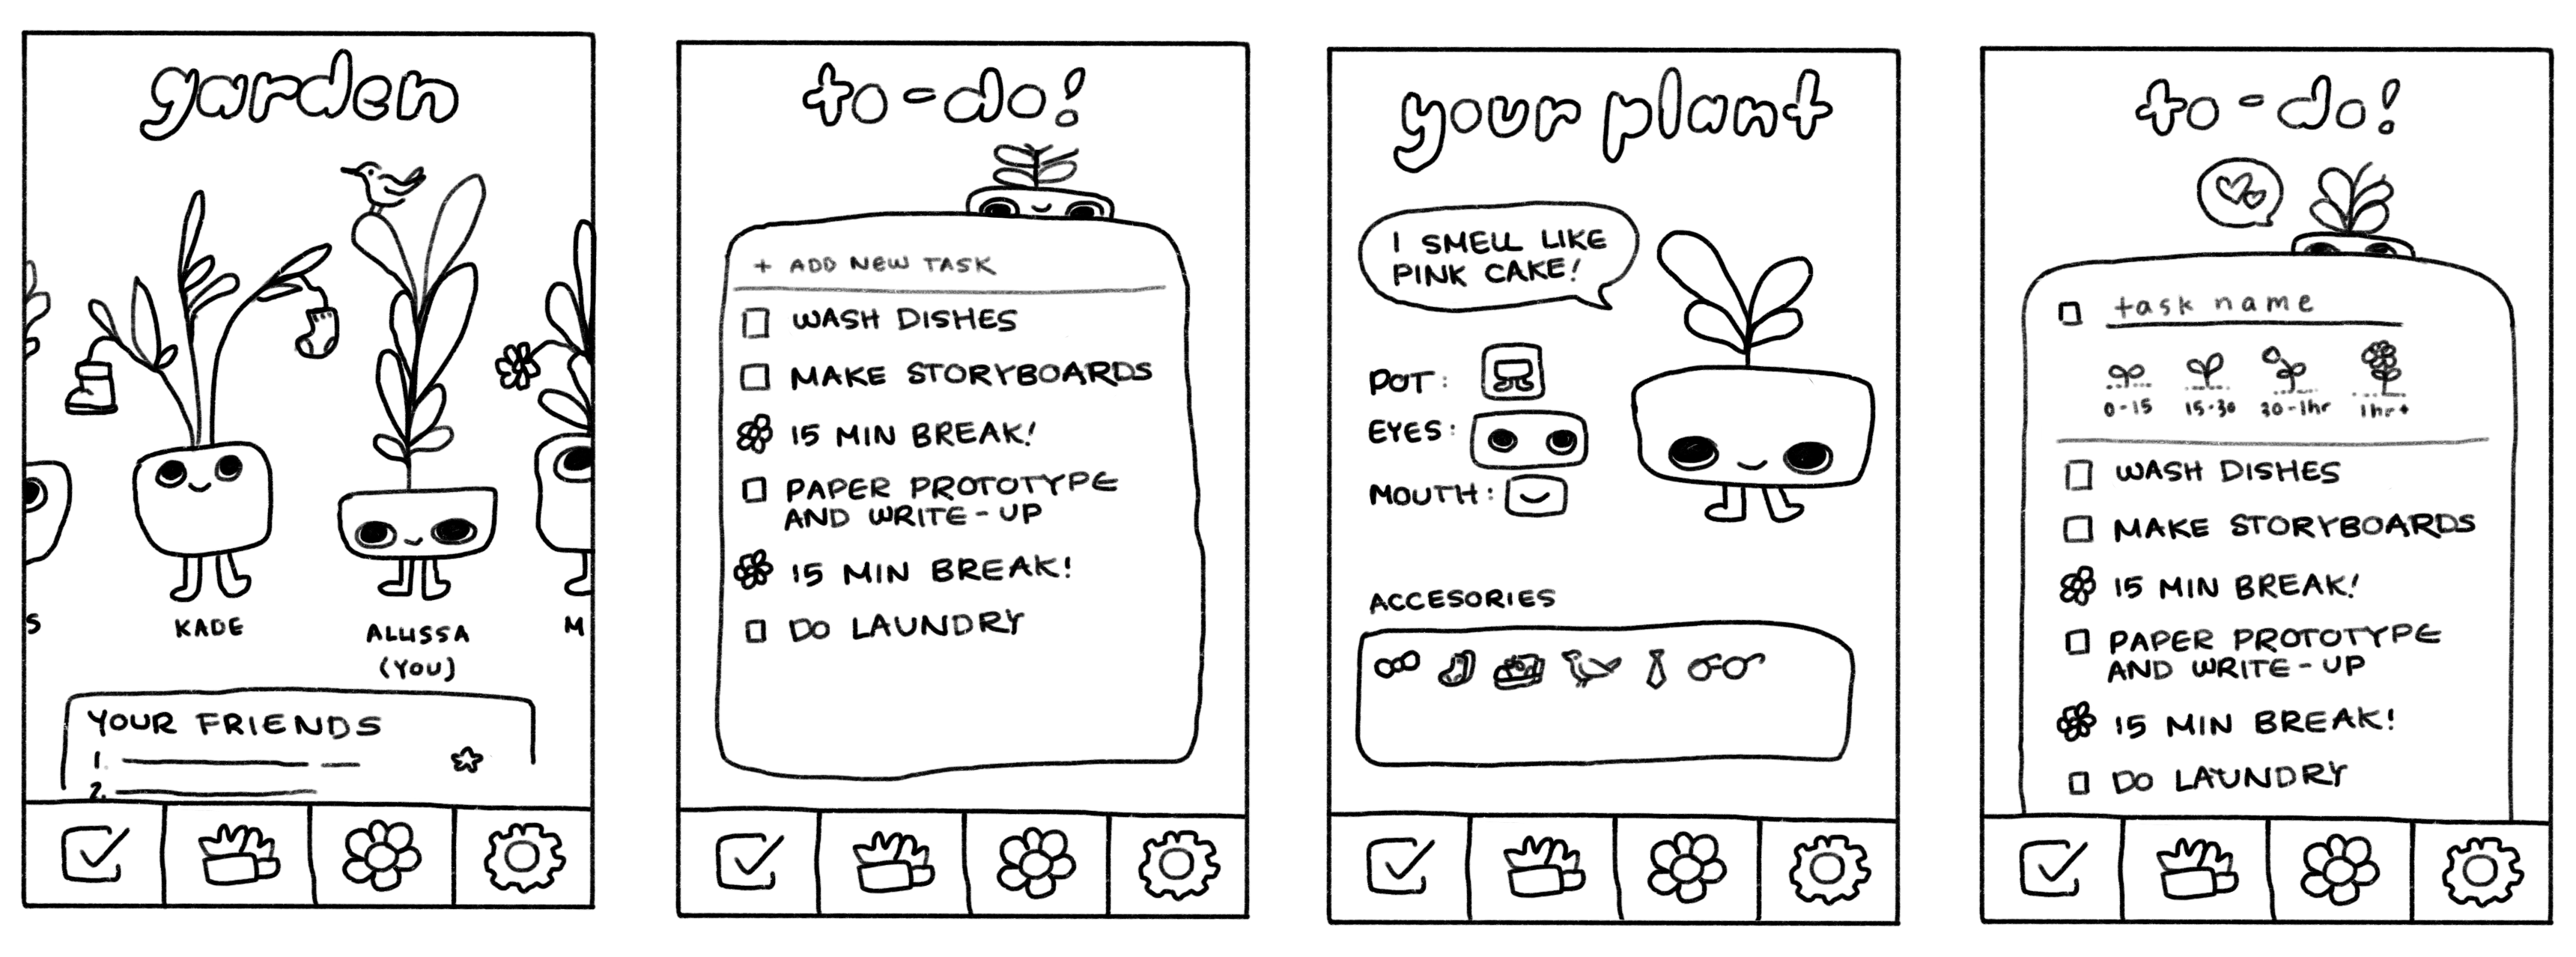 garden
S
KADE
ALLISSA
(YOU)
M
YOUR FRIENDS
1.
2.
to-do!
+ ADD NEW TASK
WASH DISHES
MAKE STORYBOARDS
15 MIN BREAK!
PAPER PROTOTYPE
AND WRITE-UP
15 MIN BREAK!
DO LAUNDRY
your plant
I SMELL LIKE
PINK CAKE!
POT:
EYES:
MOUTH:
ACCESORIES
to-do!
task name
0-15 15-30 30-1hr 1hr+
WASH DISHES
MAKE STORYBOARDS
15 MIN BREAK!
PAPER PROTOTYPE
AND WRITE-UP
15 MIN BREAK!
DO LAUNDRY